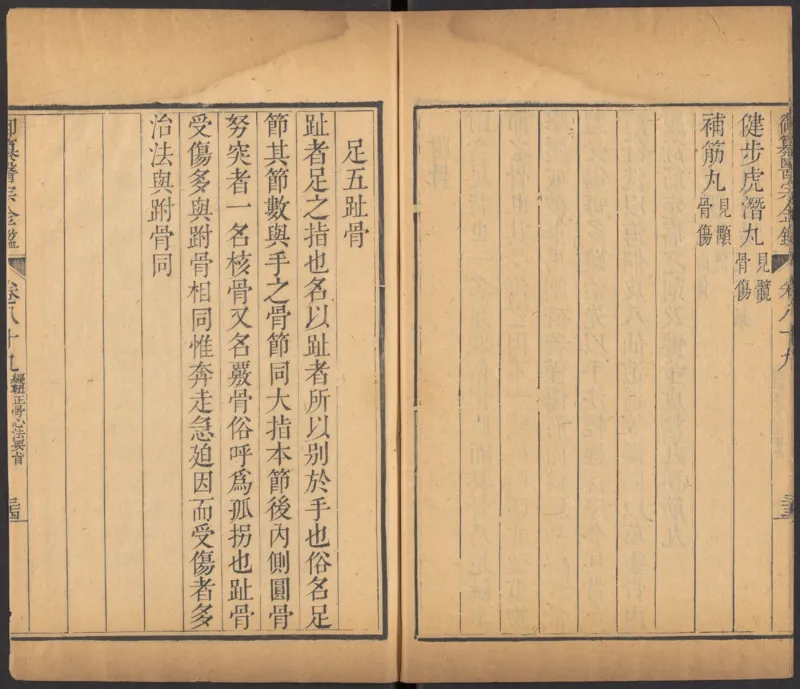 健步虎潛丸見髖骨傷
補筋丸見顒骨傷
足五趾骨
趾者足之指也名以趾者所以别於手也俗名足
節其節數與手之骨節同大指本節後內側圓骨
努突者一名核骨又名覈骨俗呼爲孤拐也趾骨
受傷多與跗骨相同惟奔走急廹因而受傷者多
治法與跗骨同
御纂醫宗金鑑
卷八十九
編輯正骨心法要旨
三四